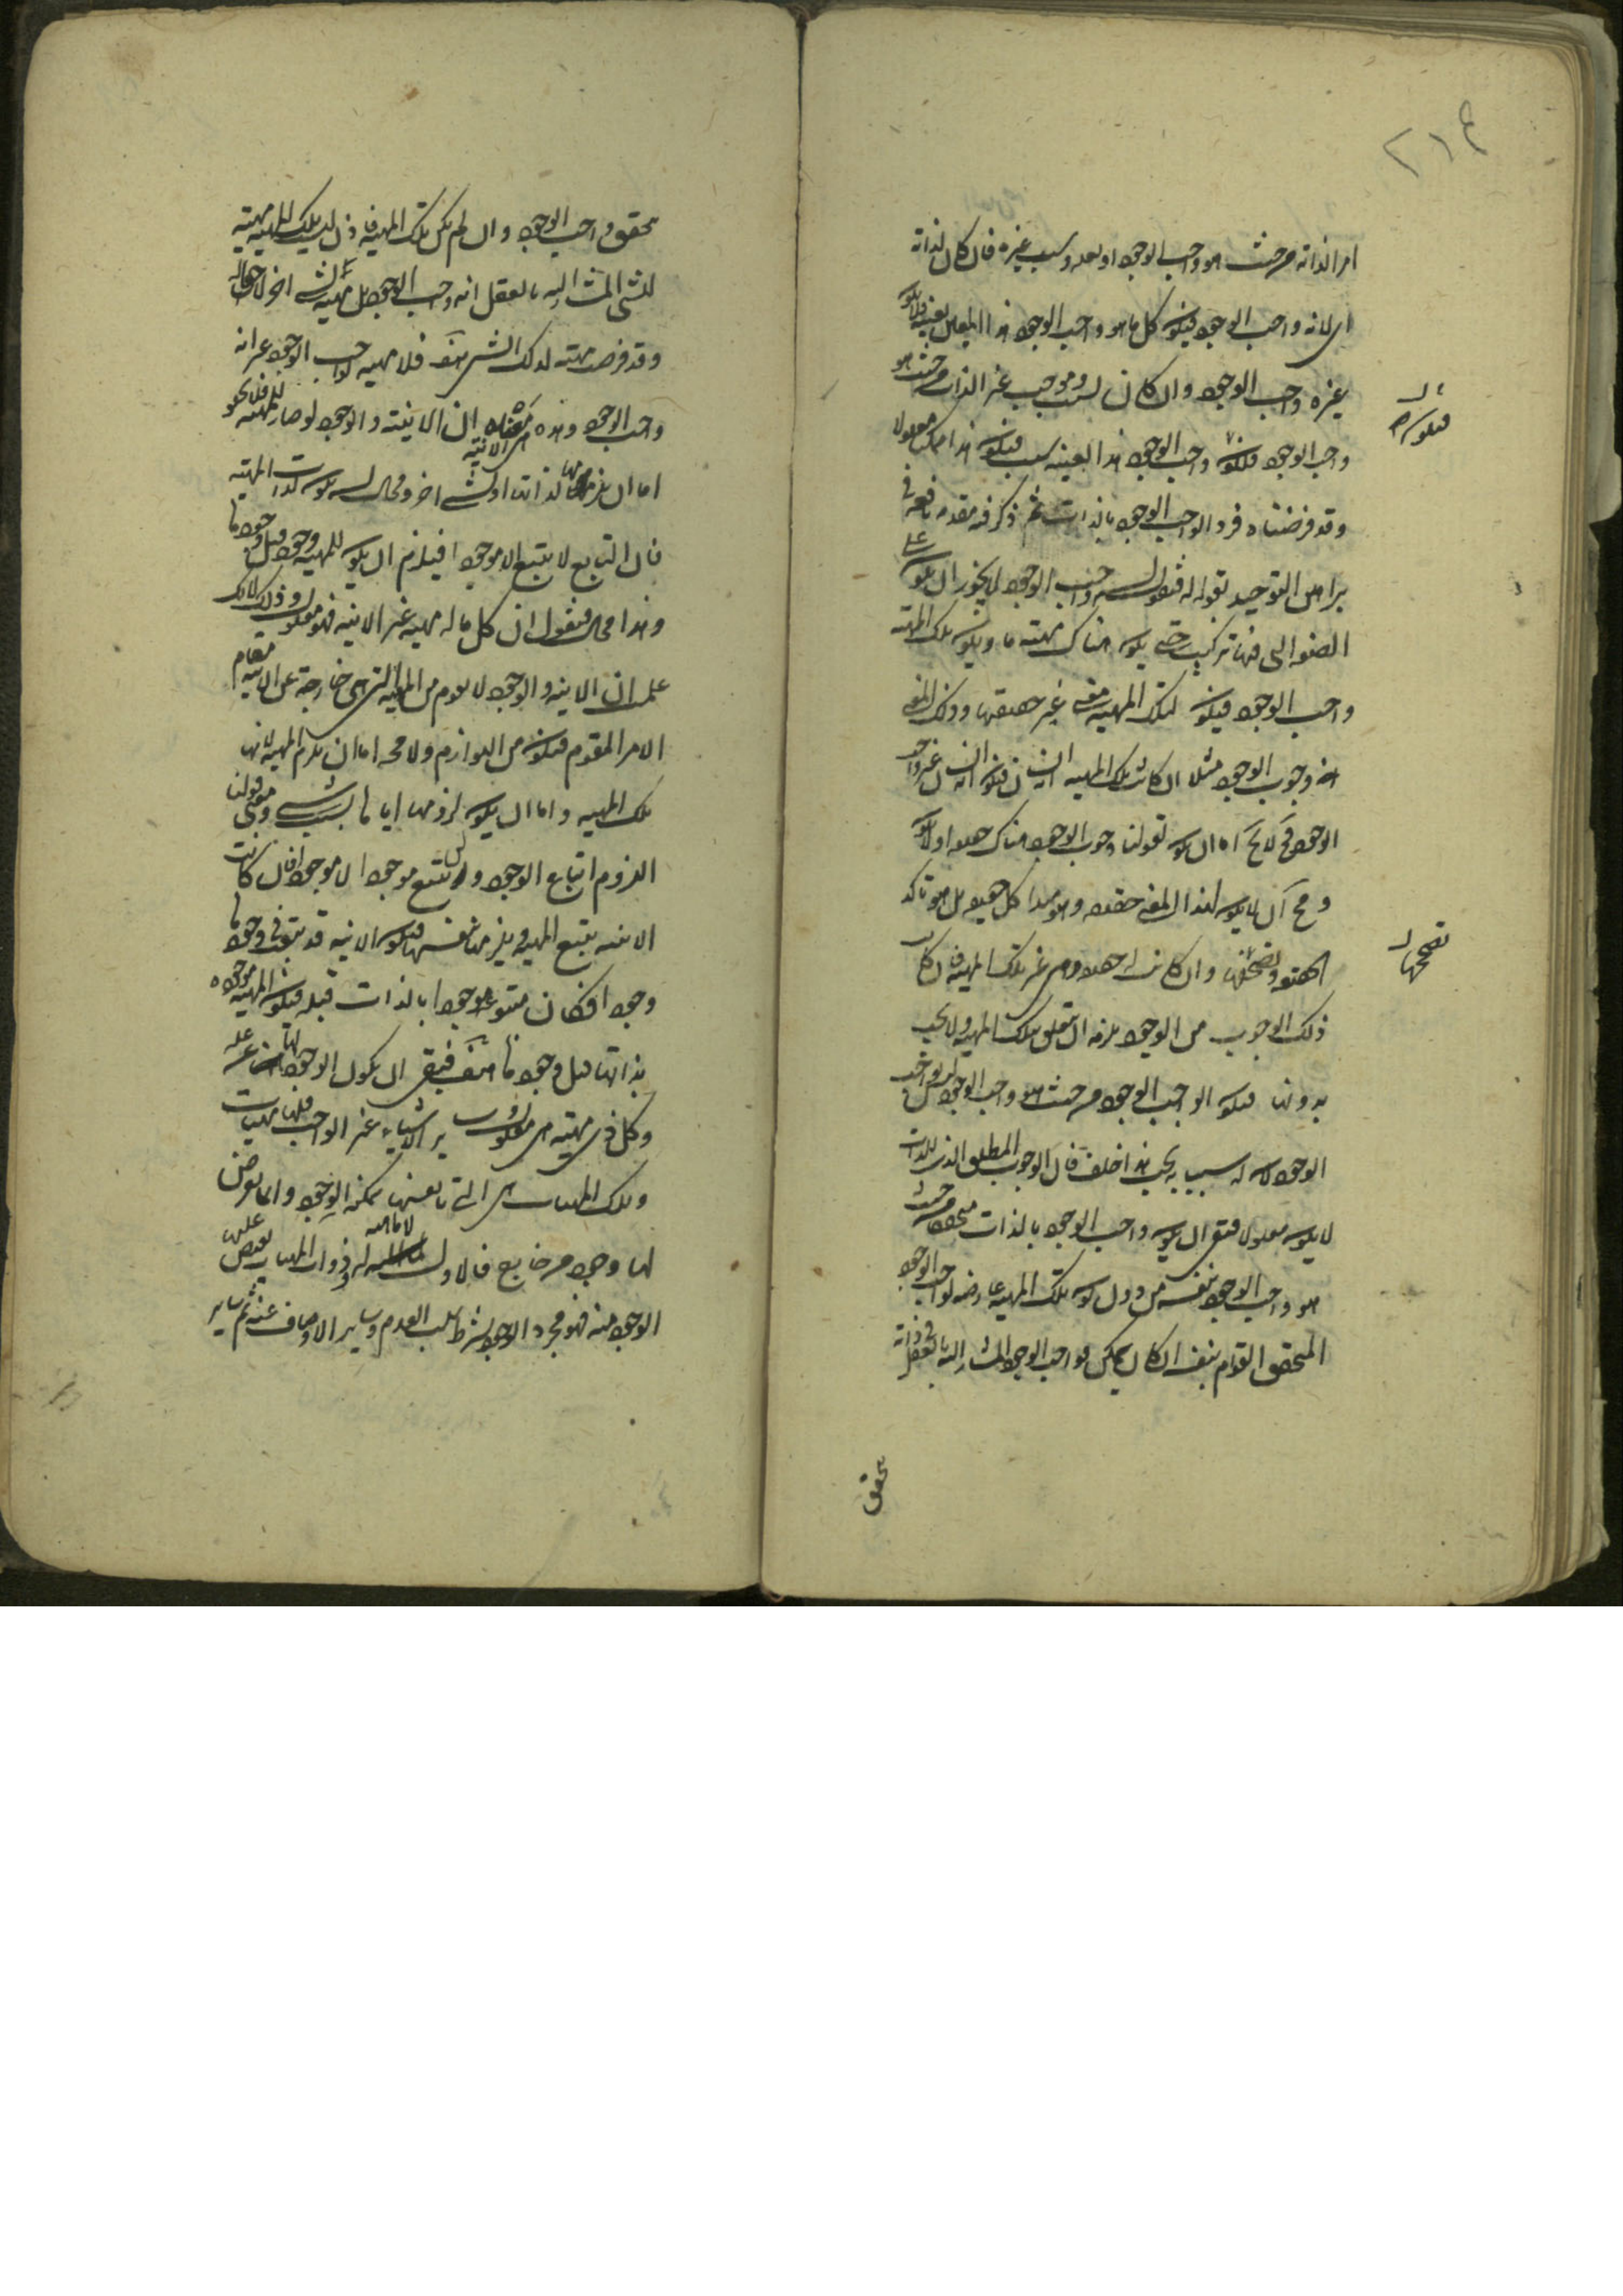 ٢١٤
امر الذاته من حيث هو واجب الوجود او لعله وسبب غيره فان كان لذاته
اى لانه واجب الوجود فيكون كل ما هو واجب الوجود هذا المعين بعينه فلا يكون
غيره واجب الوجود وان كان لسبب وموجب غير الذات من حيث هو
واجب الوجود فلكونه واجب الوجود هذا بعينه سبب فيكون هذا معلولا
وقد فرضناه فرد الواجب الوجود بالذات ثم ذكر فيه مقدمه نافعه فى
براهين التوحيد بقوله فنقول ان واجب الوجود لا يجوز ان يكون على
الصفه التى فيها تركيب حتى يكون هناك مهيته ما ويكون تلك المهيه
واجب الوجود فيكون لتلك المهيه معنى غير حقيقتها وذلك المعنى
هو وجوب الوجود مثلا ان كانت تلك المهيه انسان فيكون انه انسان غير واجب
الوجود فح لا يخ اما ان يكون لقولنا وجوب الوجود هناك حقيقه او لا يكون
ومح ان لا يكون لهذا المعنى حقيقه وهو مبدا كل حقيقه بل هو تاكد
الحقيقه وتصحيحها وان كانت له حقيقه وهى غير تلك المهيه فان كان
ذلك الوجوب من الوجود يلزمه ان يتعلق بتلك المهيه ولا يجب
بدونها فيكون الواجب الوجود من حيث هو واجب الوجود ليس بواجب
الوجود لان له سبب به يجب هذا خلف فان الوجوب المطلق الذى للذات
لا يكون معلولا فبقى ان يكون واجب الوجود بالذات متحققا من حيث
هو واجب الوجود بنفسه من دون تلك المهيه عارضه لواجب الوجود
المتحقق القوام بنفسه ان كان يمكن فواجب الوجود المشار اليه بالعقل فى ذاته
تحقق
فيكون
تصححها
تحقق واجب الوجود وان لم يكن تلك المهيه فاذن ليست تلك المهيه مهيته
للشئ المشار اليه بالعقل انه واجب الوجود بل مهيه لشئ اخر لاحق له
وقد فرضت مهيته لذلك الشئ هف فلا مهيه لواجب الوجود غير انه
واجب الوجود وهذه هى الانيه ان الانيه والوجود لو صار للمهيه فلا يخلو
اما ان يلزمها لذاتها او لشئ اخر ومحال ان يكون لذات المهيه
فان التابع لا يتبع الا موجودا فيلزم ان يكون للمهيه وجود قبل وجودها
وهذا مح فنقول ان كل ما له مهيه غير الانيه فهو معلول وذلك لانك
علمت ان الانيه والوجود لا يقوم من المهيه التى هى خارجه عن الانيه مقام
الامر المقوم فيكون من اللوازم ولا مح اما ان يلزم المهيه لانها
تلك المهيه واما ان يكون لزومها اياها بسبب شئ ومعنى قولنا
اللزوم اتباع الوجود ولن يتبع موجود الا موجودا فان كانت
الانيه يتبع المهيه ويلزمها بنفسها فيكون الانيه قد تبعت فى وجودها
وجودا فكان متبوعه موجودا بالذات قبله فيكون المهيه موجوده
بذاتها قبل وجودها هف فبقى ان يكون الوجود لها عن عله
وكل ذى مهيته معلول وساير الاشياء غير الواجب فلها مهيات
وتلك المهيات هى التى بانفسها ممكنه الوجود وانما يعرض
لها وجود من خارج فالاول لا مهيه له وذوات المهيات يفيض عليها
الوجود منه فهو مجرد الوجود بشرط سلب العدم وساير الاوصاف عنه ثم ساير